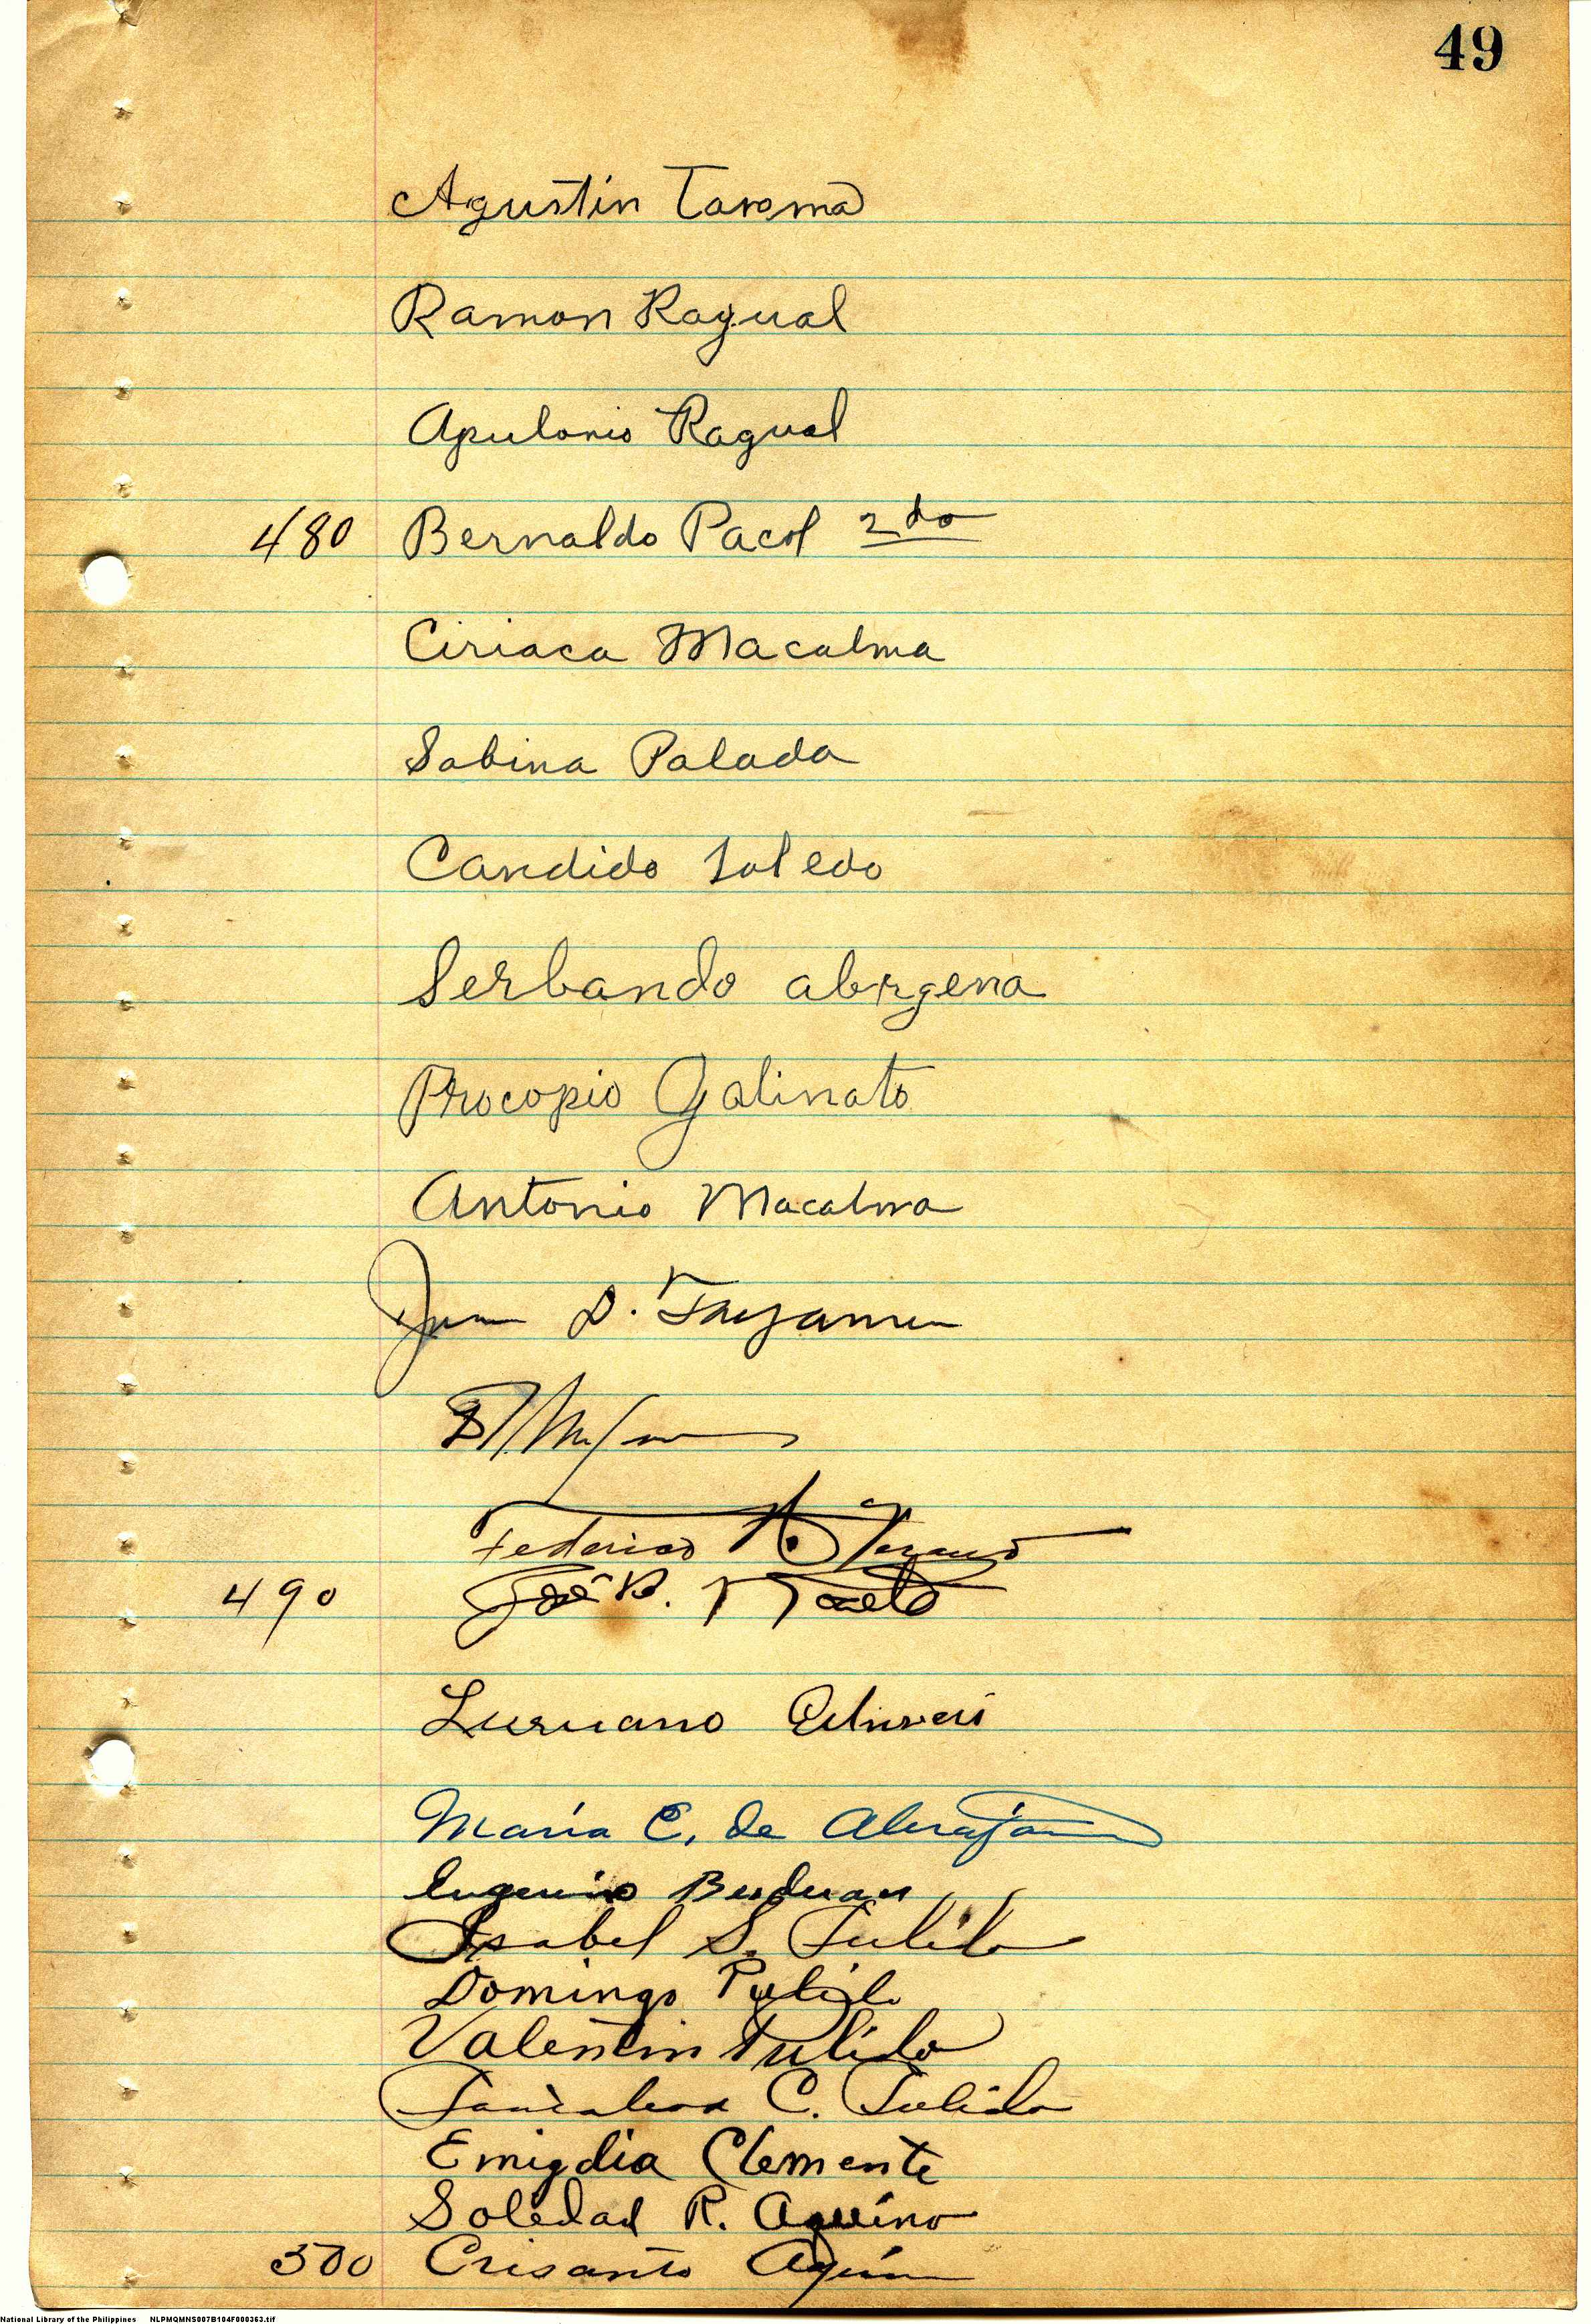 49
Agustin Taroma
Ramon Ragual
Apulonio Ragual
480 Bernaldo Pacol 2do
Ciriaca Macalma
Sabina Palada
Candido Toledo
Serbando abrgena
Procopio Galinato
Antonio Macalma
D.
Federico
490 José R.
Maria C. de
Eugenio
Isabel S. Pulido
Domingo Pulido
Valentin Pulido
C. Pulido
Emigdia Clemente
Soledad R. Aquino
500 Crisanto Aquino
National Library of the Philippines NLPMQMNS007B104F000363.tif